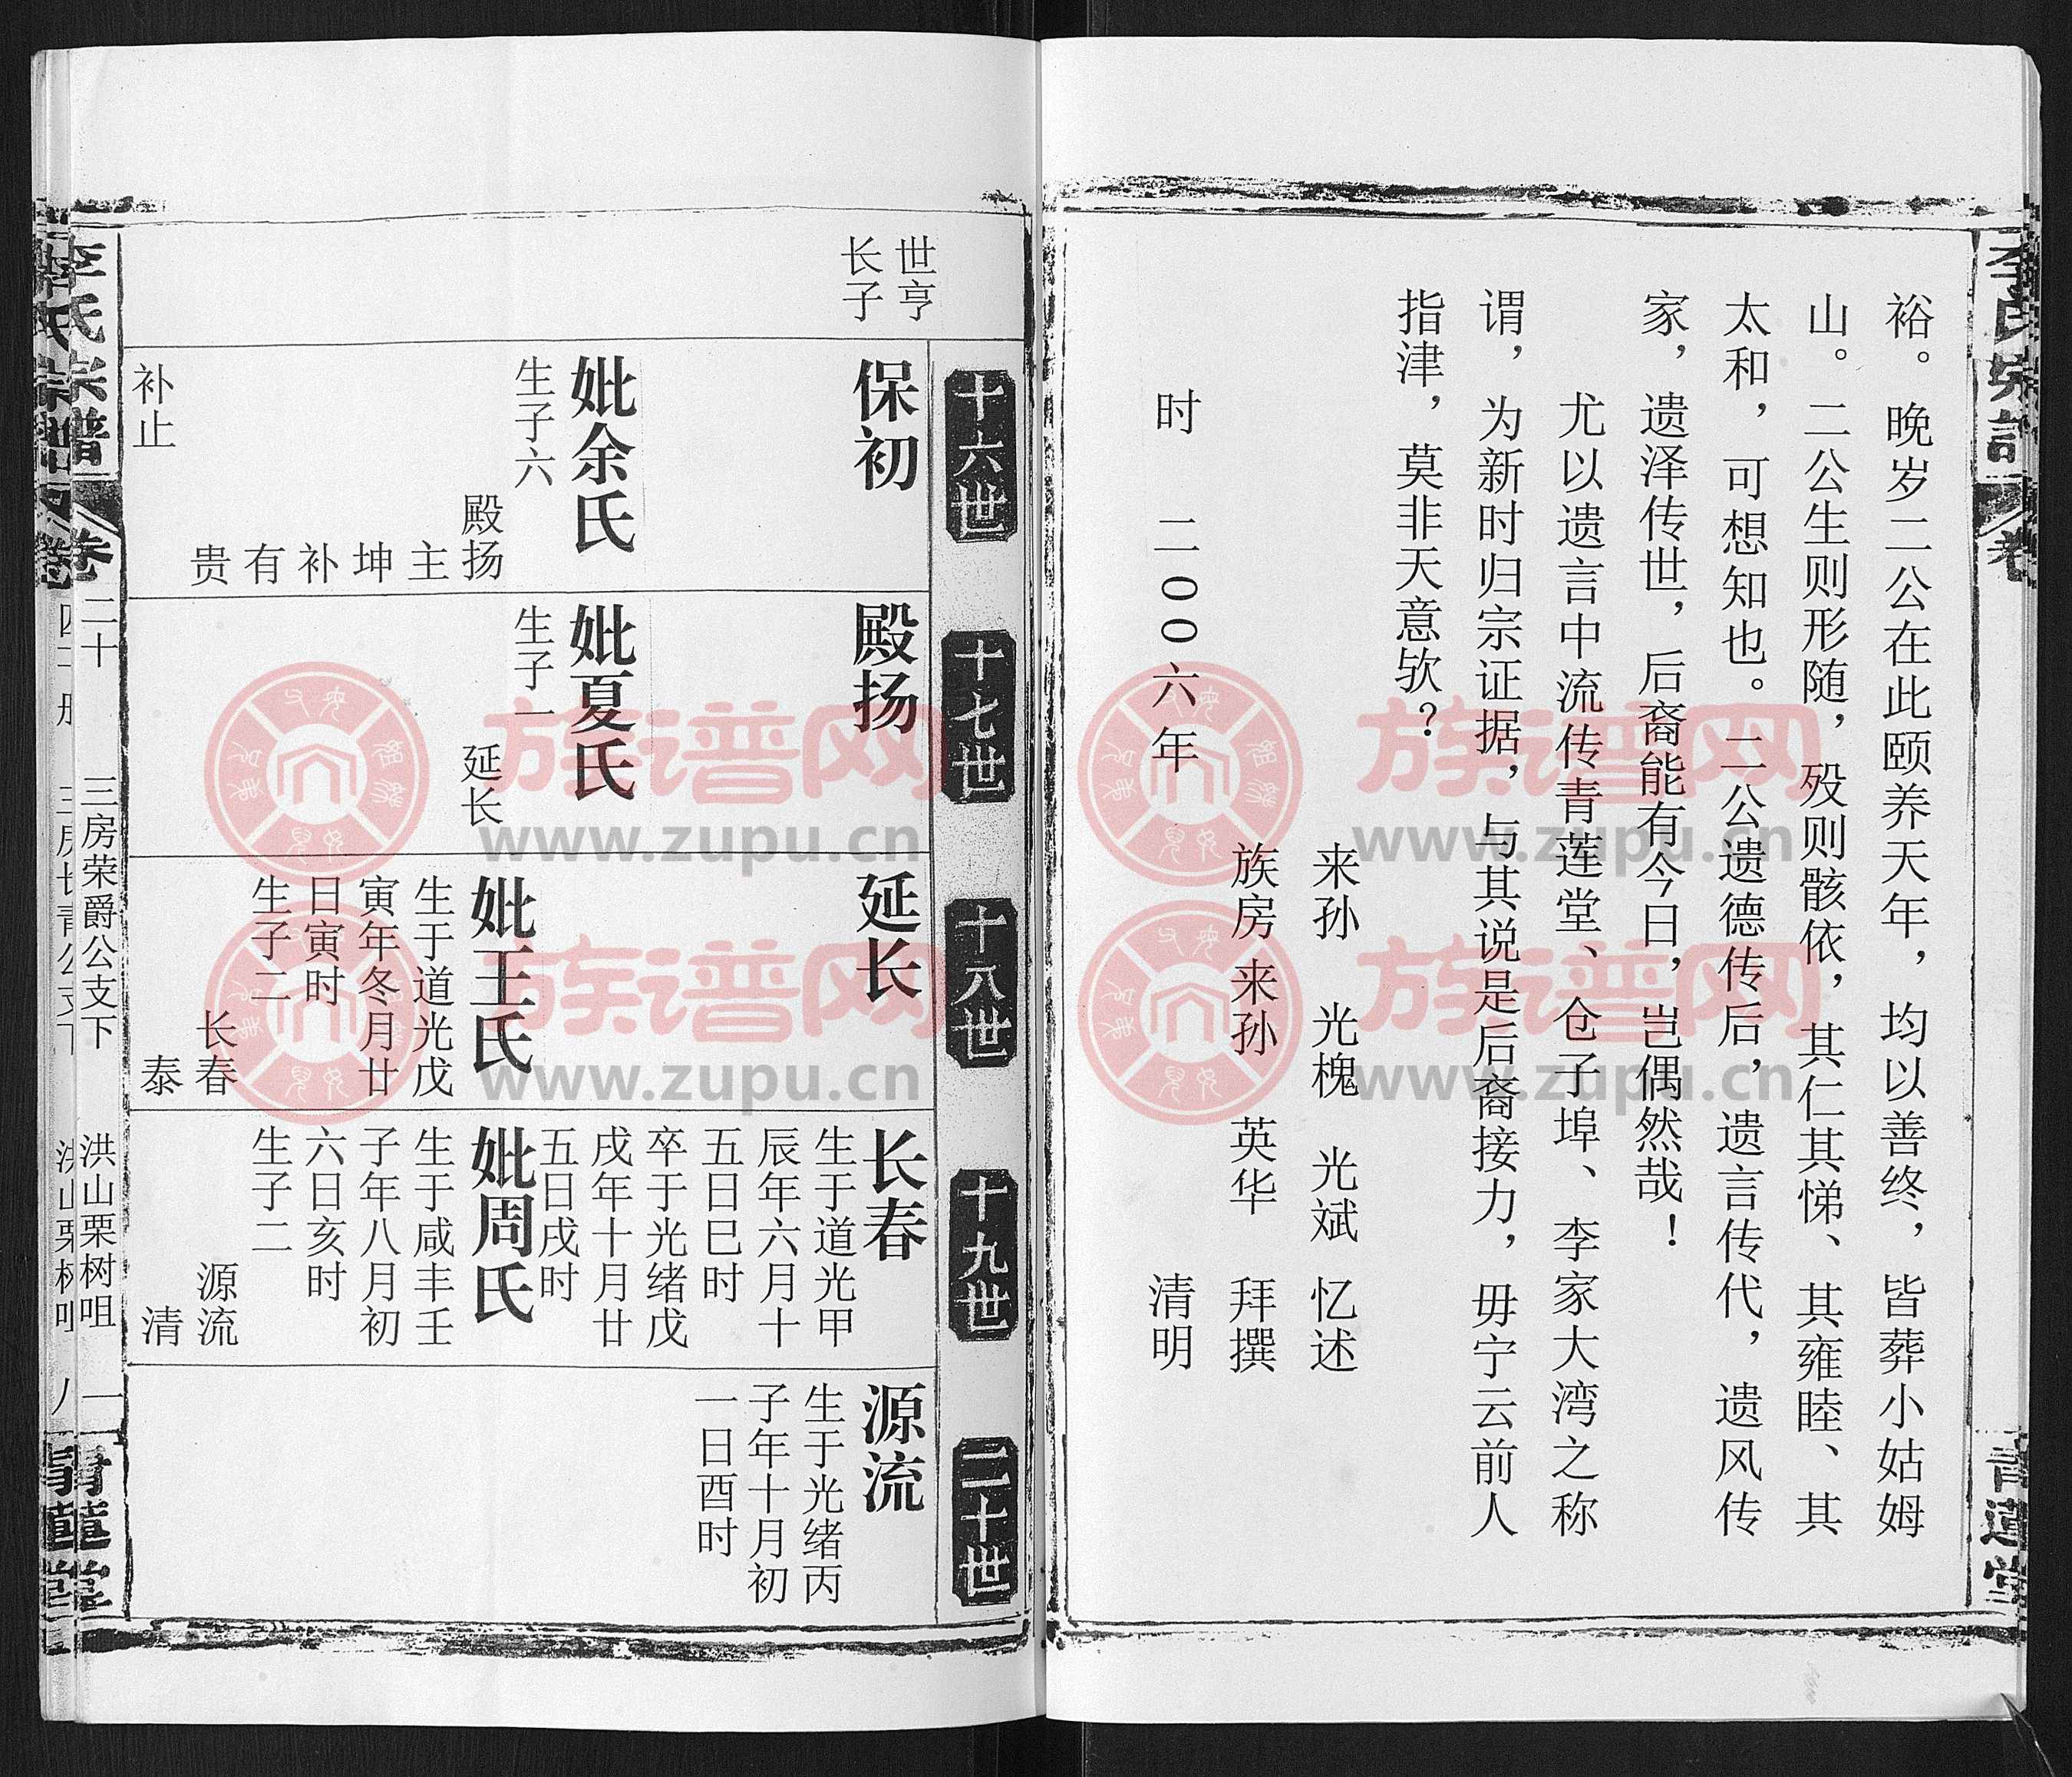 裕。晚岁二公在此颐养天年，均以善终，皆葬小姑姆
山。二公生则形随，殁则骸依，其仁其悌、其雍睦、其
太和，可想知也。二公遗德传后，遗言传代，遗风传
家，遗泽传世，后裔能有今日，岂偶然哉！
尤以遗言中流传青莲堂、仓子埠、李家大湾之称
谓，为新时归宗证据，与其说是后裔接力，毋宁云前人
指津，莫非天意欤？
来孙 光槐 光斌 忆述
族房来孙 英华 拜撰
时 二00六年 清明
十六世
十七世
十八世
十九世
二十世
世亨
长子
保初
妣余氏
生子六
殿扬
主
坤
补
有
贵
补止
殿扬
妣夏氏
生子一
延长
延长
妣王氏
生于道光戊
寅年冬月廿
日寅时
生子二
长春
泰
长春
生于道光甲
辰年六月十
五日巳时
卒于光绪戊
戌年十月廿
五日戌时
妣周氏
生于咸丰壬
子年八月初
六日亥时
生子二
源流
清
源流
生于光绪丙
子年十月初
一日酉时
李氏宗谱 卷二十 三房荣爵公支下 洪山栗树咀 一 青莲堂
族谱网
www.zupu.cn
族谱网
www.zupu.cn
族谱网
www.zupu.cn
族谱网
www.zupu.cn